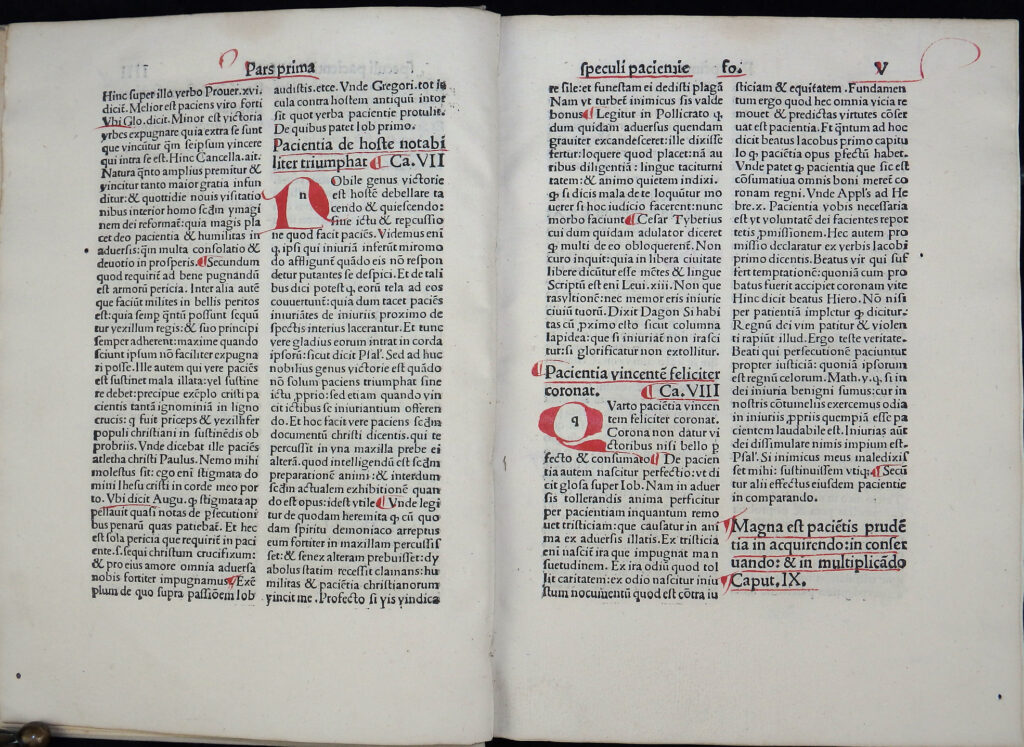 Pars prima
Hinc super illo verbo Prouer. xvi.
dicit. Melior est paciens viro forti
Vbi Glo. dicit. Minor est victoria
vrbes expugnare quia extra se sunt
que vincūtur q̄m seipsum vincere
qui intra se est. Hinc Cancella. ait.
Natura q̄nto amplius premitur &
vincitur tanto maior gratia infun
ditur: & quottidie nouis visitatio
nibus interior homo scd̄m ymagi
nem dei reformat᷑: quia magis pla
cet deo pacientia & humilitas in
aduersis: q̄m multa consolatio &
deuotio in prosperis. ¶ Secundum
quod requirit᷑ ad bene pugnandū
est armorū pericia. Inter alia autē
que faciūt milites in bellis peritos
est: quia semp q̄ntū possunt sequū
tur vexillum regis: & suo principi
semper adherent: maxime quando
sciunt ipsum nō faciliter expugna
ri posse. Ille autem qui vere paciēs
est sustinet mala illata: vel sustine
re debet: precipue exēplo cristi pa
cientis tantā ignominiā in ligno
crucis: q fuit priceps & vexillifer
populi christiani in sustinēdis ob
probriis. Vnde dicebat ille paciēs
atletha christi Paulus. Nemo mihi
molestus sit: ego eni stigmata do
mini Ihesu cristi in corde meo por
to. Vbi dicit Augu. ꝙ stigmata ap
pellauit quasi notas de psecutioni
bus penarū quas patiebat᷑. Et hec
est sola pericia que requirit᷑ in paci
ente. s. sequi christum crucifixum:
& pro eius amore omnia aduersa
nobis fortiter impugnamus ¶ Exē
plum de quo supra passiōem Iob
audistis. etce. Vnde Gregori. tot ia
cula contra hostem antiquū intor
sit quot verba pacientie protulit.
De quibus patet Iob primo.
Pacientia de hoste notabi
liter triumphat ¶ Ca. VII
Nobile genus victorie
est hostē debellare ta
cendo & quiescendo:
sine ictu & repcussio
ne quod facit paciēs. Videmus eni
ꝙ ipsi qui iniuriā inferūt miromo
do affligunt᷑ quādo eis nō respon
detur putantes se despici. Et de tali
bus dici potest ꝙ eorū tela ad eos
couuertunt᷑: quia dum tacet paciēs
iniuriātes de iniuriis proximo de
spectis interius lacerantur. Et tunc
vere gladius eorum intrat in corda
ipsorū: sicut dicit Psal. Sed ad huc
nobilius genus victorie est quādo
nō solum paciens triumphat sine
ictu pprio: sed etiam quando vin
cit ictibus se iniuriantium offeren
do. Et hoc facit vere paciens scd̄m
documentū christi dicentis. qui te
percussit in vna maxilla prebe ei
alterā. quod intelligendū est scd̄m
preparationē animi: & interdum
scd̄m actualem exhibitionē quan
do est opus: idest vtile ¶ Vnde legi
tur de quodam heremita ꝙ cū quo
dam spiritu demoniaco arreptus
eum fortiter in maxillam percussis
set: & senex alteram prebuisset: dy
abolus statim recessit clamans: hu
militas & paciētia christianorum
vincit me. Profecto si vis vindica
speculi paciencie fo. V
re sile: et funestam ei dedisti plagā
Nam vt turbet᷑ inimicus sis valde
bonus ¶ Legitur in Pollicrato ꝙ
dum quidam aduersus quendam
grauiter excandesceret: ille dixisse
fertur: loquere quod placet: nā au
ribus diligentiā: lingue taciturni
tatem: & animo quietem indixi.
ꝙ si dicis mala de te loquūtur mo
uerer si hoc iudicio facerent: nunc
morbo faciunt ¶ Cesar Tyberius
cui dum quidam adulator diceret
ꝙ multi de eo obloquerent᷑. Non
curo inquit: quia in libera ciuitate
libere dicūtur esse mētes & lingue
Scriptū est eni Leui. xiii. Non que
ras vltionē: nec memor eris iniurie
ciuiū tuorū. Dixit Dagon Si habi
tas cū pximo esto sicut columna
lapidea: que si iniuriat᷑ non irasci
tur: si glorificatur non extollitur.
¶ Pacientia vincentē feliciter
coronat. ¶ Ca. VIII
Quarto paciētia vincen
tem feliciter coronat.
Corona non datur vi
ctoribus nisi bello p
fecto & consumato ¶ De pacien
tia autem nascitur perfectio: vt di
cit glosa super Iob. Nam in aduer
sis tollerandis anima perficitur
per pacientiam inquantum remo
uet tristiciam: que causatur in ani
ma ex aduersis illatis. Ex tristicia
eni nascit᷑ ira que impugnat man
suetudinem. Ex ira odiū quod tol
lit caritatem: ex odio nascitur iniu
stum nocumentū quod est cōtra iu
sticiam & equitatem. Fundamen
tum ergo quod hec omnia vicia re
mouet & predictas virtutes cōser
uat est pacientia. Et q̄ntum ad hoc
dicit beatus Iacobus primo capitu
lo ꝙ paciētia opus pfectū habet.
Vnde patet ꝙ pacientia que sic est
cōsumatiua omnis boni meret᷑ co
ronam regni. Vnde Appls ad He
bre. x. Pacientia vobis necessaria
est vt voluntatē dei facientes repor
tetis pmissionem. Hec autem pro
missio declaratur ex verbis Iacobi
primo dicentis. Beatus vir qui suf
fert temptationē: quoniā cum pro
batus fuerit accipiet coronam vite
Hinc dicit beatus Hiero. Nō nisi
per patientiam impletur ꝙ dicitur.
Regnū dei vim patitur & violen
ti rapiūt illud. Ergo teste veritate.
Beati qui persecutionē paciuntur
propter iusticiā: quoniā ipsorum
est regnū celorum. Math. v. ꝙ si in
dei iniuria benigni sumus: cur in
nostris cōtumeliis exercemus odia
in iniuriis ppriis quempiā esse pa
cientem laudabile est. Iniurias autē
dei dissimulare nimis impium est.
Psal. Si inimicus meus maledixis
set mihi: sustinuissem vtiq; ¶ Secū
tur alii effectus eiusdem pacientie
in comparando.
¶ Magna est paciētis prudē
tia in acquirendo: in conser
uando: & in multiplicādo
¶ Caput. IX.